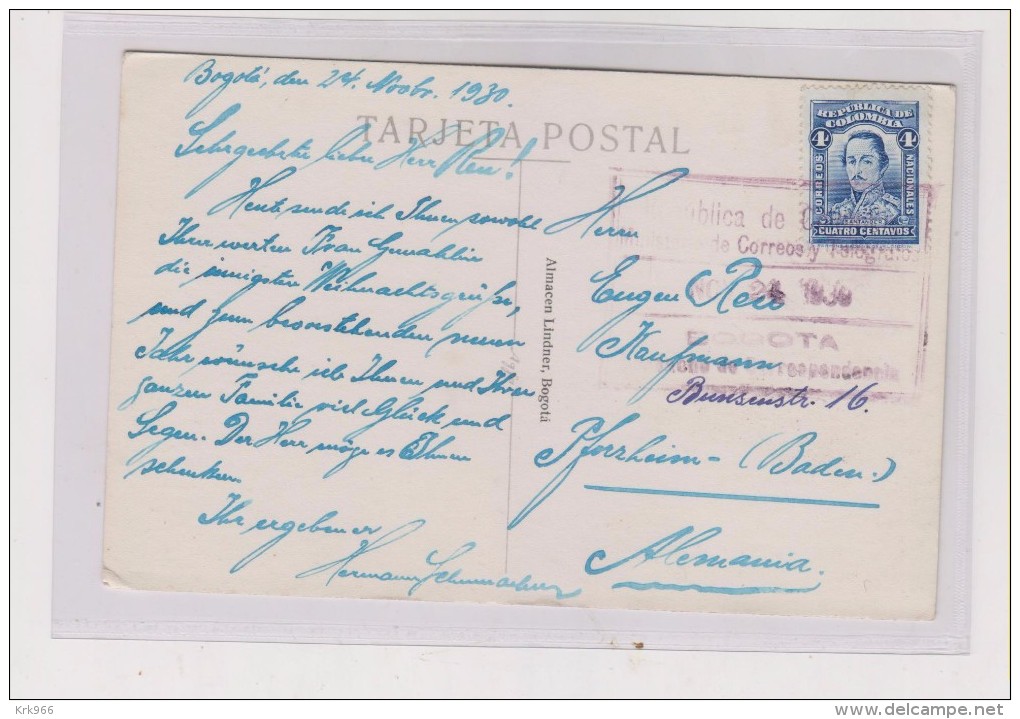 Bogotá, den 24. Novbr. 1930.
TARJETA POSTAL
Sehrgeehrter lieber Herr Reu!
Heute sende ich Ihnen sowohl
Ihrer werten Frau Gemahlin
die innigsten Weihnachtsgrüße,
und zum bevorstehenden neuen
Jahr wünsche ich Ihnen und Ihrer
ganzen Familie viel Glück und
Segen. Der Herr möge es Ihnen
schenken.
Ihr ergebener
Hermann Schumacher
Almacen Lindner, Bogotá
REPÚBLICA DE
COLOMBIA
4 4
CORREOS
NACIONALES
CUATRO CENTAVOS
República de
de Correos y Telégrafos
NOV 24 1930
BOGOTA
de Correspondencia
Herrn
Eugen Reu
Kaufmann
Bunsenstr. 16.
Pforzheim - (Baden.)
Alemania.
Krk966
delcampe.net